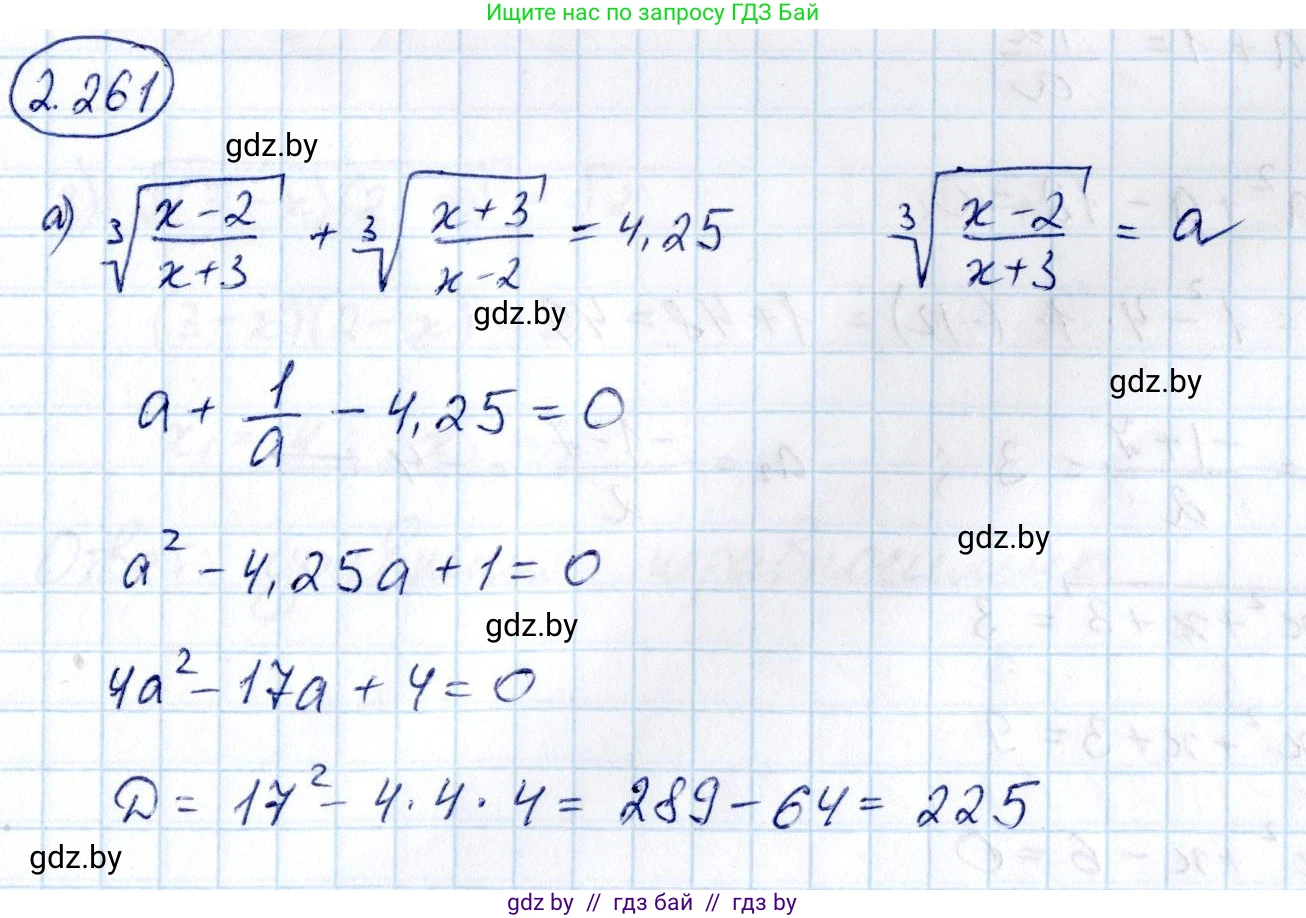 Ищите нас по запросу ГДЗ Бай
2.261
gdz.by
а) ∛((x-2)/(x+3)) + ∛((x+3)/(x-2)) = 4,25   ∛((x-2)/(x+3)) = a
gdz.by
gdz.by
a + 1/a - 4,25 = 0
gdz.by
a² - 4,25a + 1 = 0
gdz.by
4a² - 17a + 4 = 0
D = 17² - 4·4·4 = 289 - 64 = 225
gdz.by
gdz by // гдз бай // гдз by